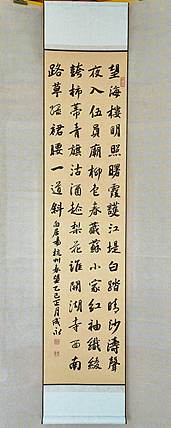 望海樓明照曙霞護江堤白踏晴沙濤聲
夜入伍員廟柳色春藏蘇小家紅袖織綾
誇柿蒂青旗沽酒趁梨花誰開湖寺西南
路草綠裙腰一道斜 白居易杭州春望 乙巳